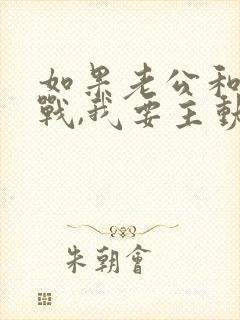 如果老公和
戰,我要主
朱朝會